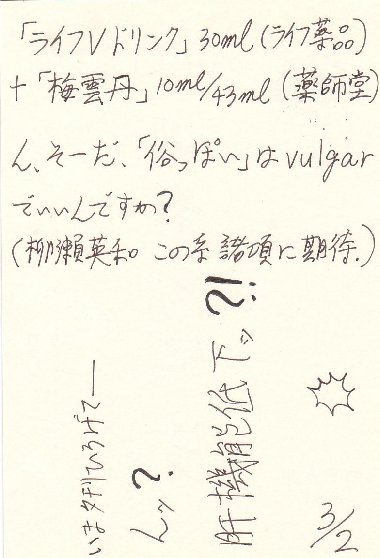 「ライフVドリンク」30ml(ライフ薬品)
+「梅雲丹」10ml/43ml(薬師堂)
ん、そーだ、「俗っぽい」はvulgar
でいいんですか?
(柳瀬英和 この系諸項に期待.)
肝機能低下ッ
んッ
3/2